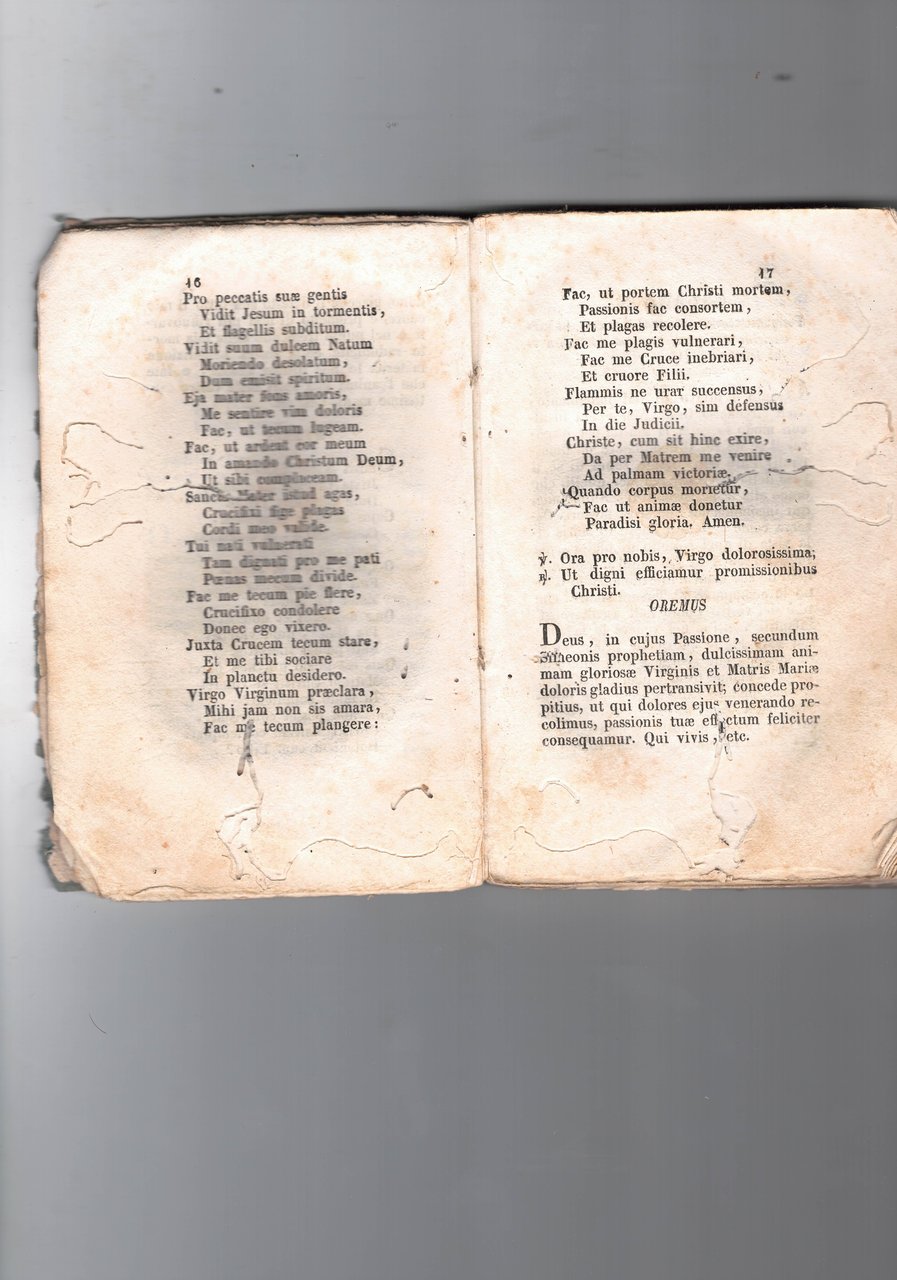 16
Pro peccatis suæ gentis
Vidit Jesum in tormentis,
Et flagellis subditum.
Vidit suum dulcem Natum
Moriendo desolatum,
Dum emisit spiritum.
Eja mater fons amoris,
Me sentire vim doloris
Fac, ut tecum lugeam.
Fac, ut ardeat cor meum
In amando Christum Deum,
Ut sibi complaceam.
Sancta Mater istud agas,
Crucifixi fige plagas
Cordi meo valide.
Tui nati vulnerati
Tam dignati pro me pati
Pœnas mecum divide.
Fac me tecum pie flere,
Crucifixo condolere
Donec ego vixero.
Juxta Crucem tecum stare,
Et me tibi sociare
In planctu desidero.
Virgo Virginum præclara,
Mihi jam non sis amara,
Fac me tecum plangere:
17
Fac, ut portem Christi mortem,
Passionis fac consortem,
Et plagas recolere.
Fac me plagis vulnerari,
Fac me Cruce inebriari,
Et cruore Filii.
Flammis ne urar succensus,
Per te, Virgo, sim defensus
In die Judicii.
Christe, cum sit hinc exire,
Da per Matrem me venire
Ad palmam victoriæ.
Quando corpus morietur,
Fac ut animæ donetur
Paradisi gloria. Amen.
℣. Ora pro nobis, Virgo dolorosissima;
℟. Ut digni efficiamur promissionibus
Christi.
OREMUS
Deus, in cujus Passione, secundum
Simeonis prophetiam, dulcissimam ani-
mam gloriosæ Virginis et Matris Mariæ
doloris gladius pertransivit; concede pro-
pitius, ut qui dolores ejus venerando re-
colimus, passionis tuæ effectum feliciter
consequamur. Qui vivis, etc.